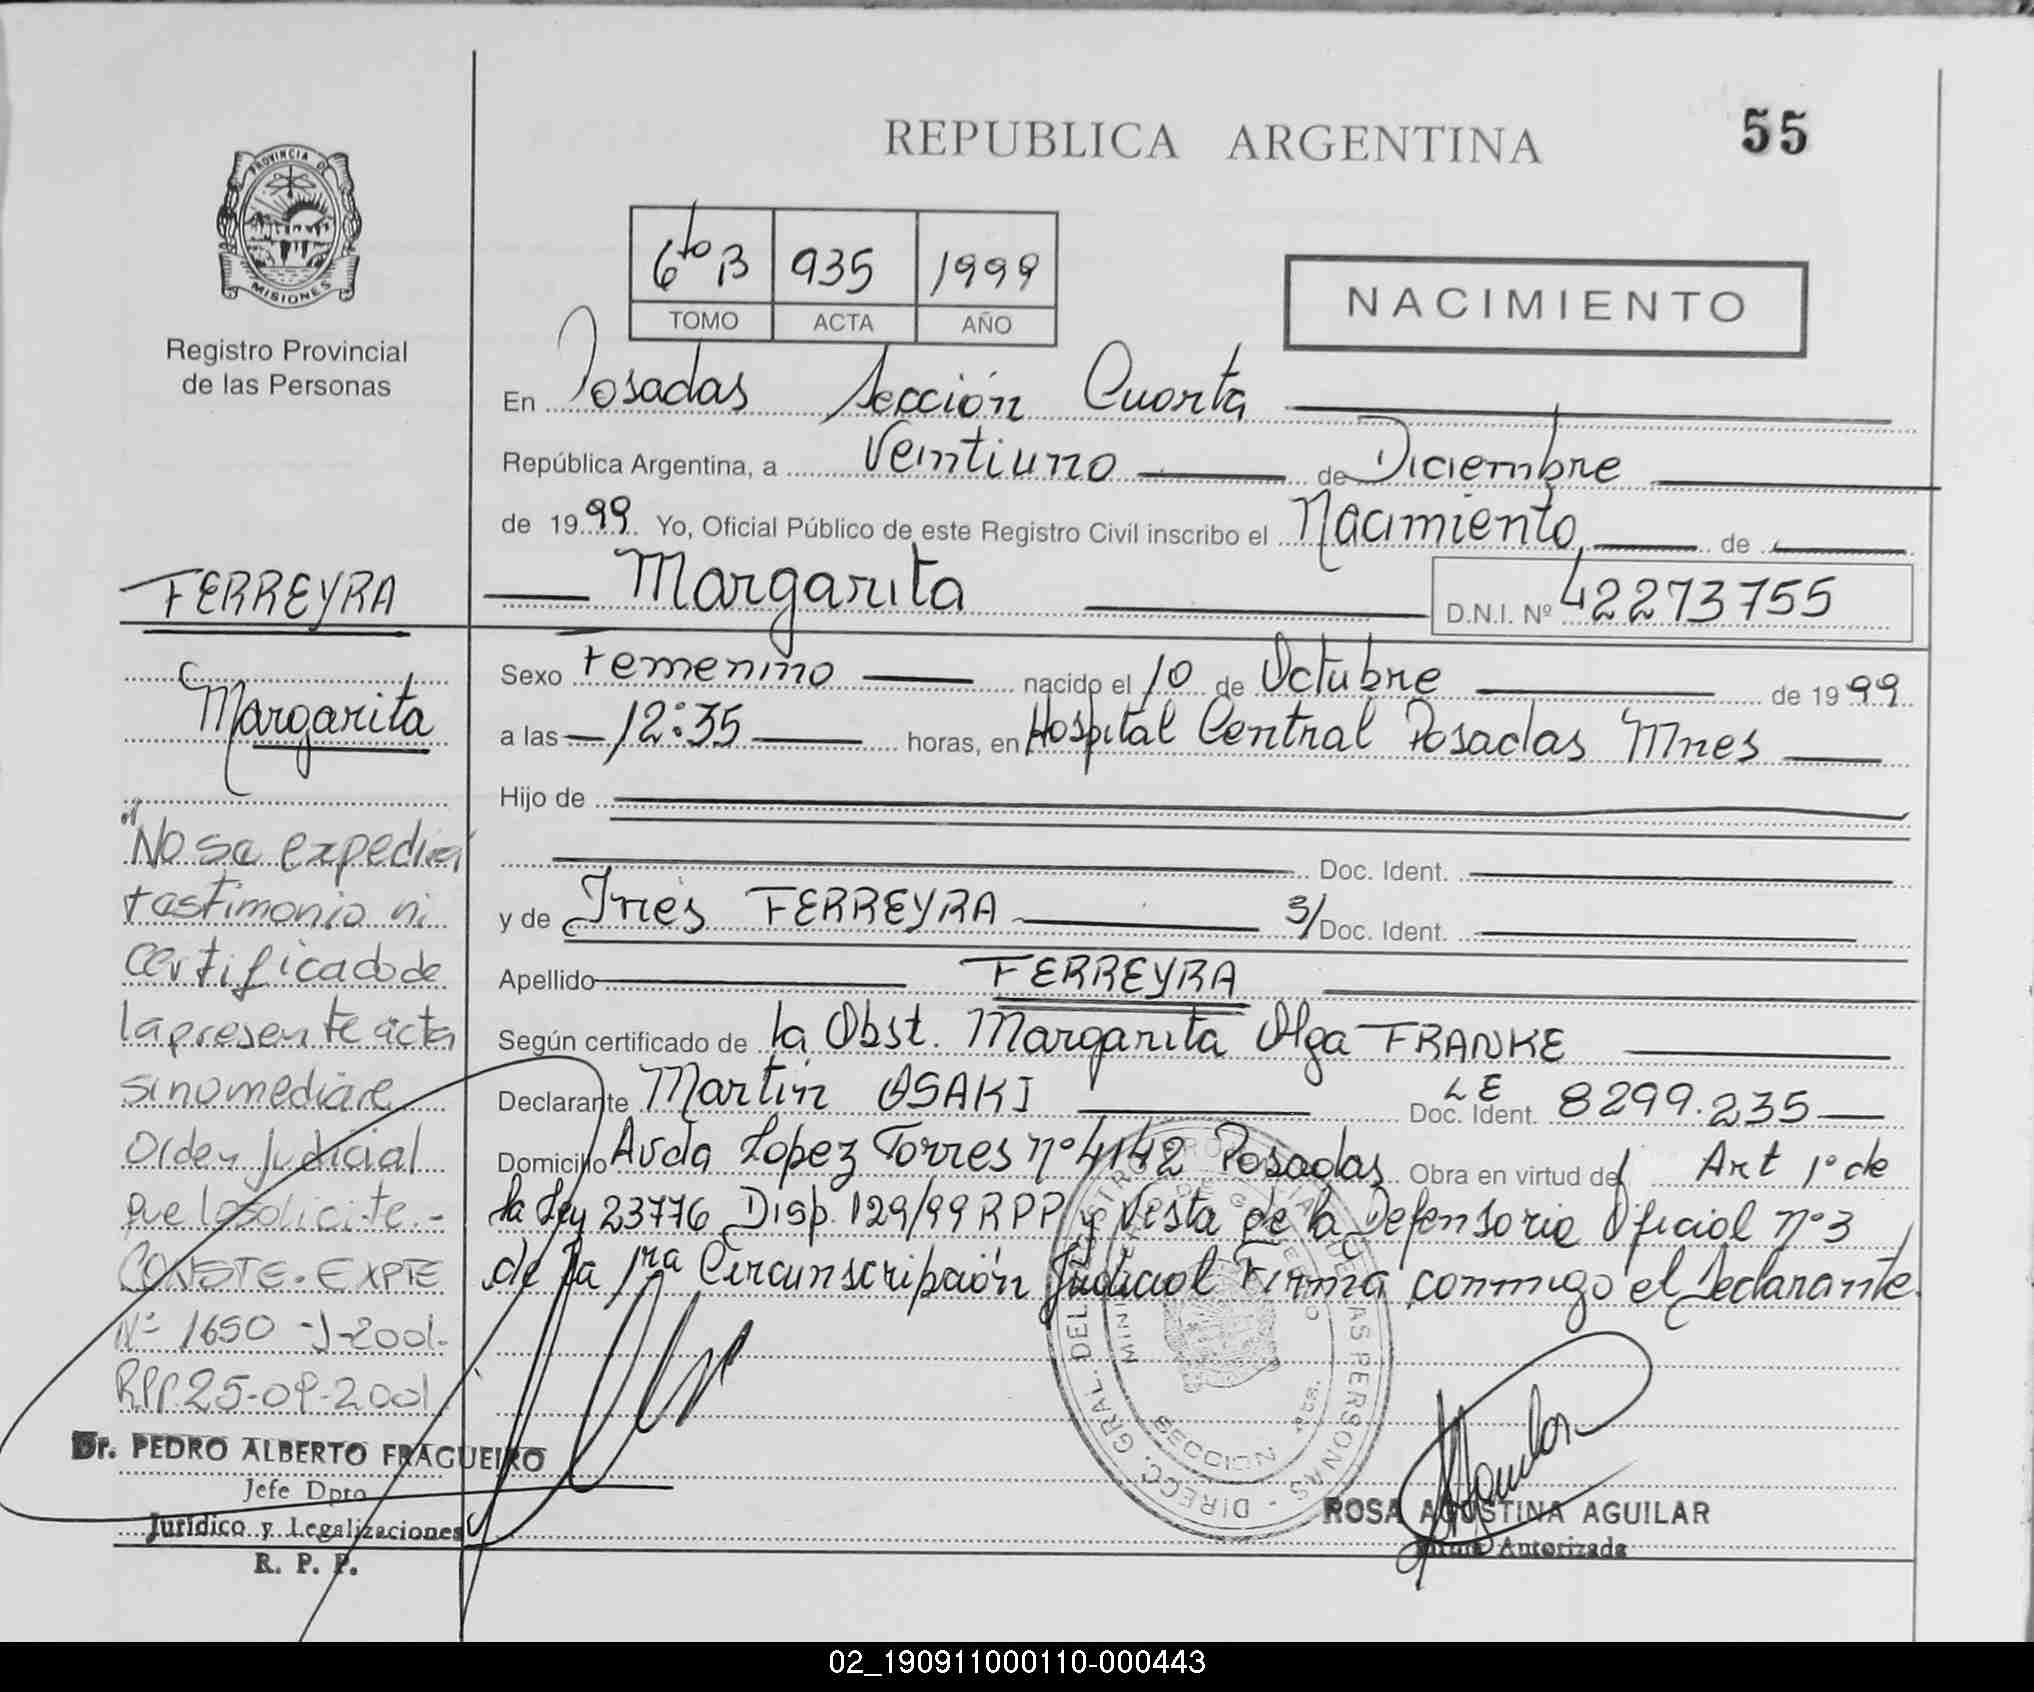 REPUBLICA ARGENTINA
55
PROVINCIA DE
MISIONES
Registro Provincial
de las Personas
6to B 935 1999
TOMO ACTA AÑO
NACIMIENTO
En Posadas Sección Cuarta
República Argentina, a Veintiuno de Diciembre
de 1999 Yo, Oficial Público de este Registro Civil inscribo el Nacimiento, de
Margarita D.N.I. Nº 42273755
Sexo Femenino nacido el 10 de Octubre de 1999
a las 12:35 horas, en Hospital Central Posadas Mnes
Hijo de
Doc. Ident.
y de Inés FERREYRA S/ Doc. Ident.
Apellido FERREYRA
Según certificado de la Obst. Margarita Olga FRANKE
Declarante Martin OSAKI LE Doc. Ident. 8299.235
Domicilio Avda Lopez Torres nº 4142 Posadas Obra en virtud del Art 1º de
la Ley 23776 Disp. 129/99 RPP y Vista de la Defensoria Oficial nº 3
de la 1ra Circunscripción Judicial Firma conmigo el Declarante.
FERREYRA
Margarita
"No se expedirá
testimonio ni
certificado de
la presente acta
si no mediare
Orden Judicial
que lo solicite.-
CONSTE. EXPTE
Nº 1650 -J-2001.
RPP 25-09-2001
Dr. PEDRO ALBERTO FRAGUEIRO
Jefe Dpto
Jurídico y Legalizaciones
R. P. P.
DIRECC. GRAL. DEL REGISTRO PROVINCIAL DE LAS PERSONAS
MINISTERIO DE GOBIERNO
ROSA AGUSTINA AGUILAR
Firma Autorizada
02_190911000110-000443